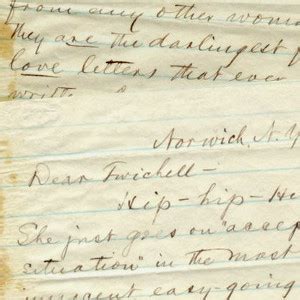 from any other wom
They are the darlingest f
love letters that ever
Norwich, N. Y
Dear Twichell—
Hip-hip-Hu
She just goes on "accep
situation" in the most
innocent easy-going